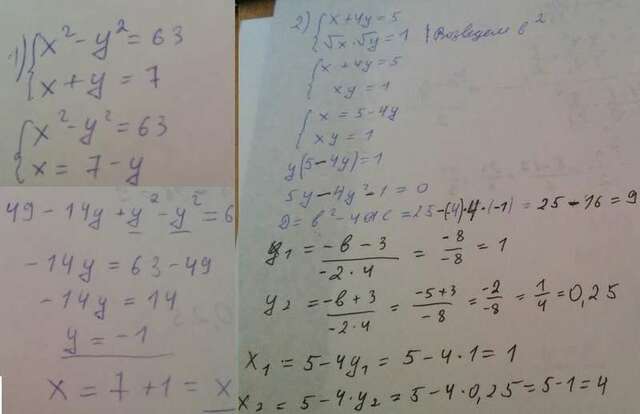 1) { x² - y² = 63
{ x + y = 7
{ x² - y² = 63
{ x = 7 - y
49 - 14y + y² - y² = 6
-14y = 63 - 49
-14y = 14
y = -1
x = 7 + 1 = x
2) { x + 4y = 5
{ √x · √y = 1 | Возведем в ²
{ x + 4y = 5
xy = 1
{ x = 5 - 4y
xy = 1
y(5 - 4y) = 1
5y - 4y² - 1 = 0
D = b² - 4ac = 25 - (4)·4·(-1) = 25 - 16 = 9
y₁ = (-b - 3)/(-2·4) = -8/-8 = 1
y₂ = (-b + 3)/(-2·4) = (-5 + 3)/-8 = -2/-8 = 1/4 = 0,25
x₁ = 5 - 4y₁ = 5 - 4·1 = 1
x₂ = 5 - 4·y₂ = 5 - 4·0,25 = 5 - 1 = 4